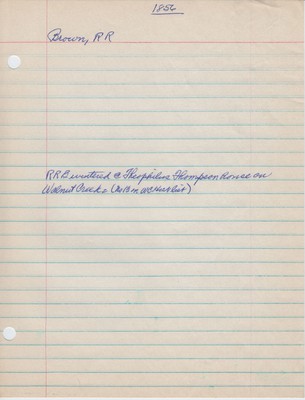 1856
Brown, RR
RRB wintered @ Theophilus Thompson house on
Walnut Creek. (No 13 in WC Hist list)